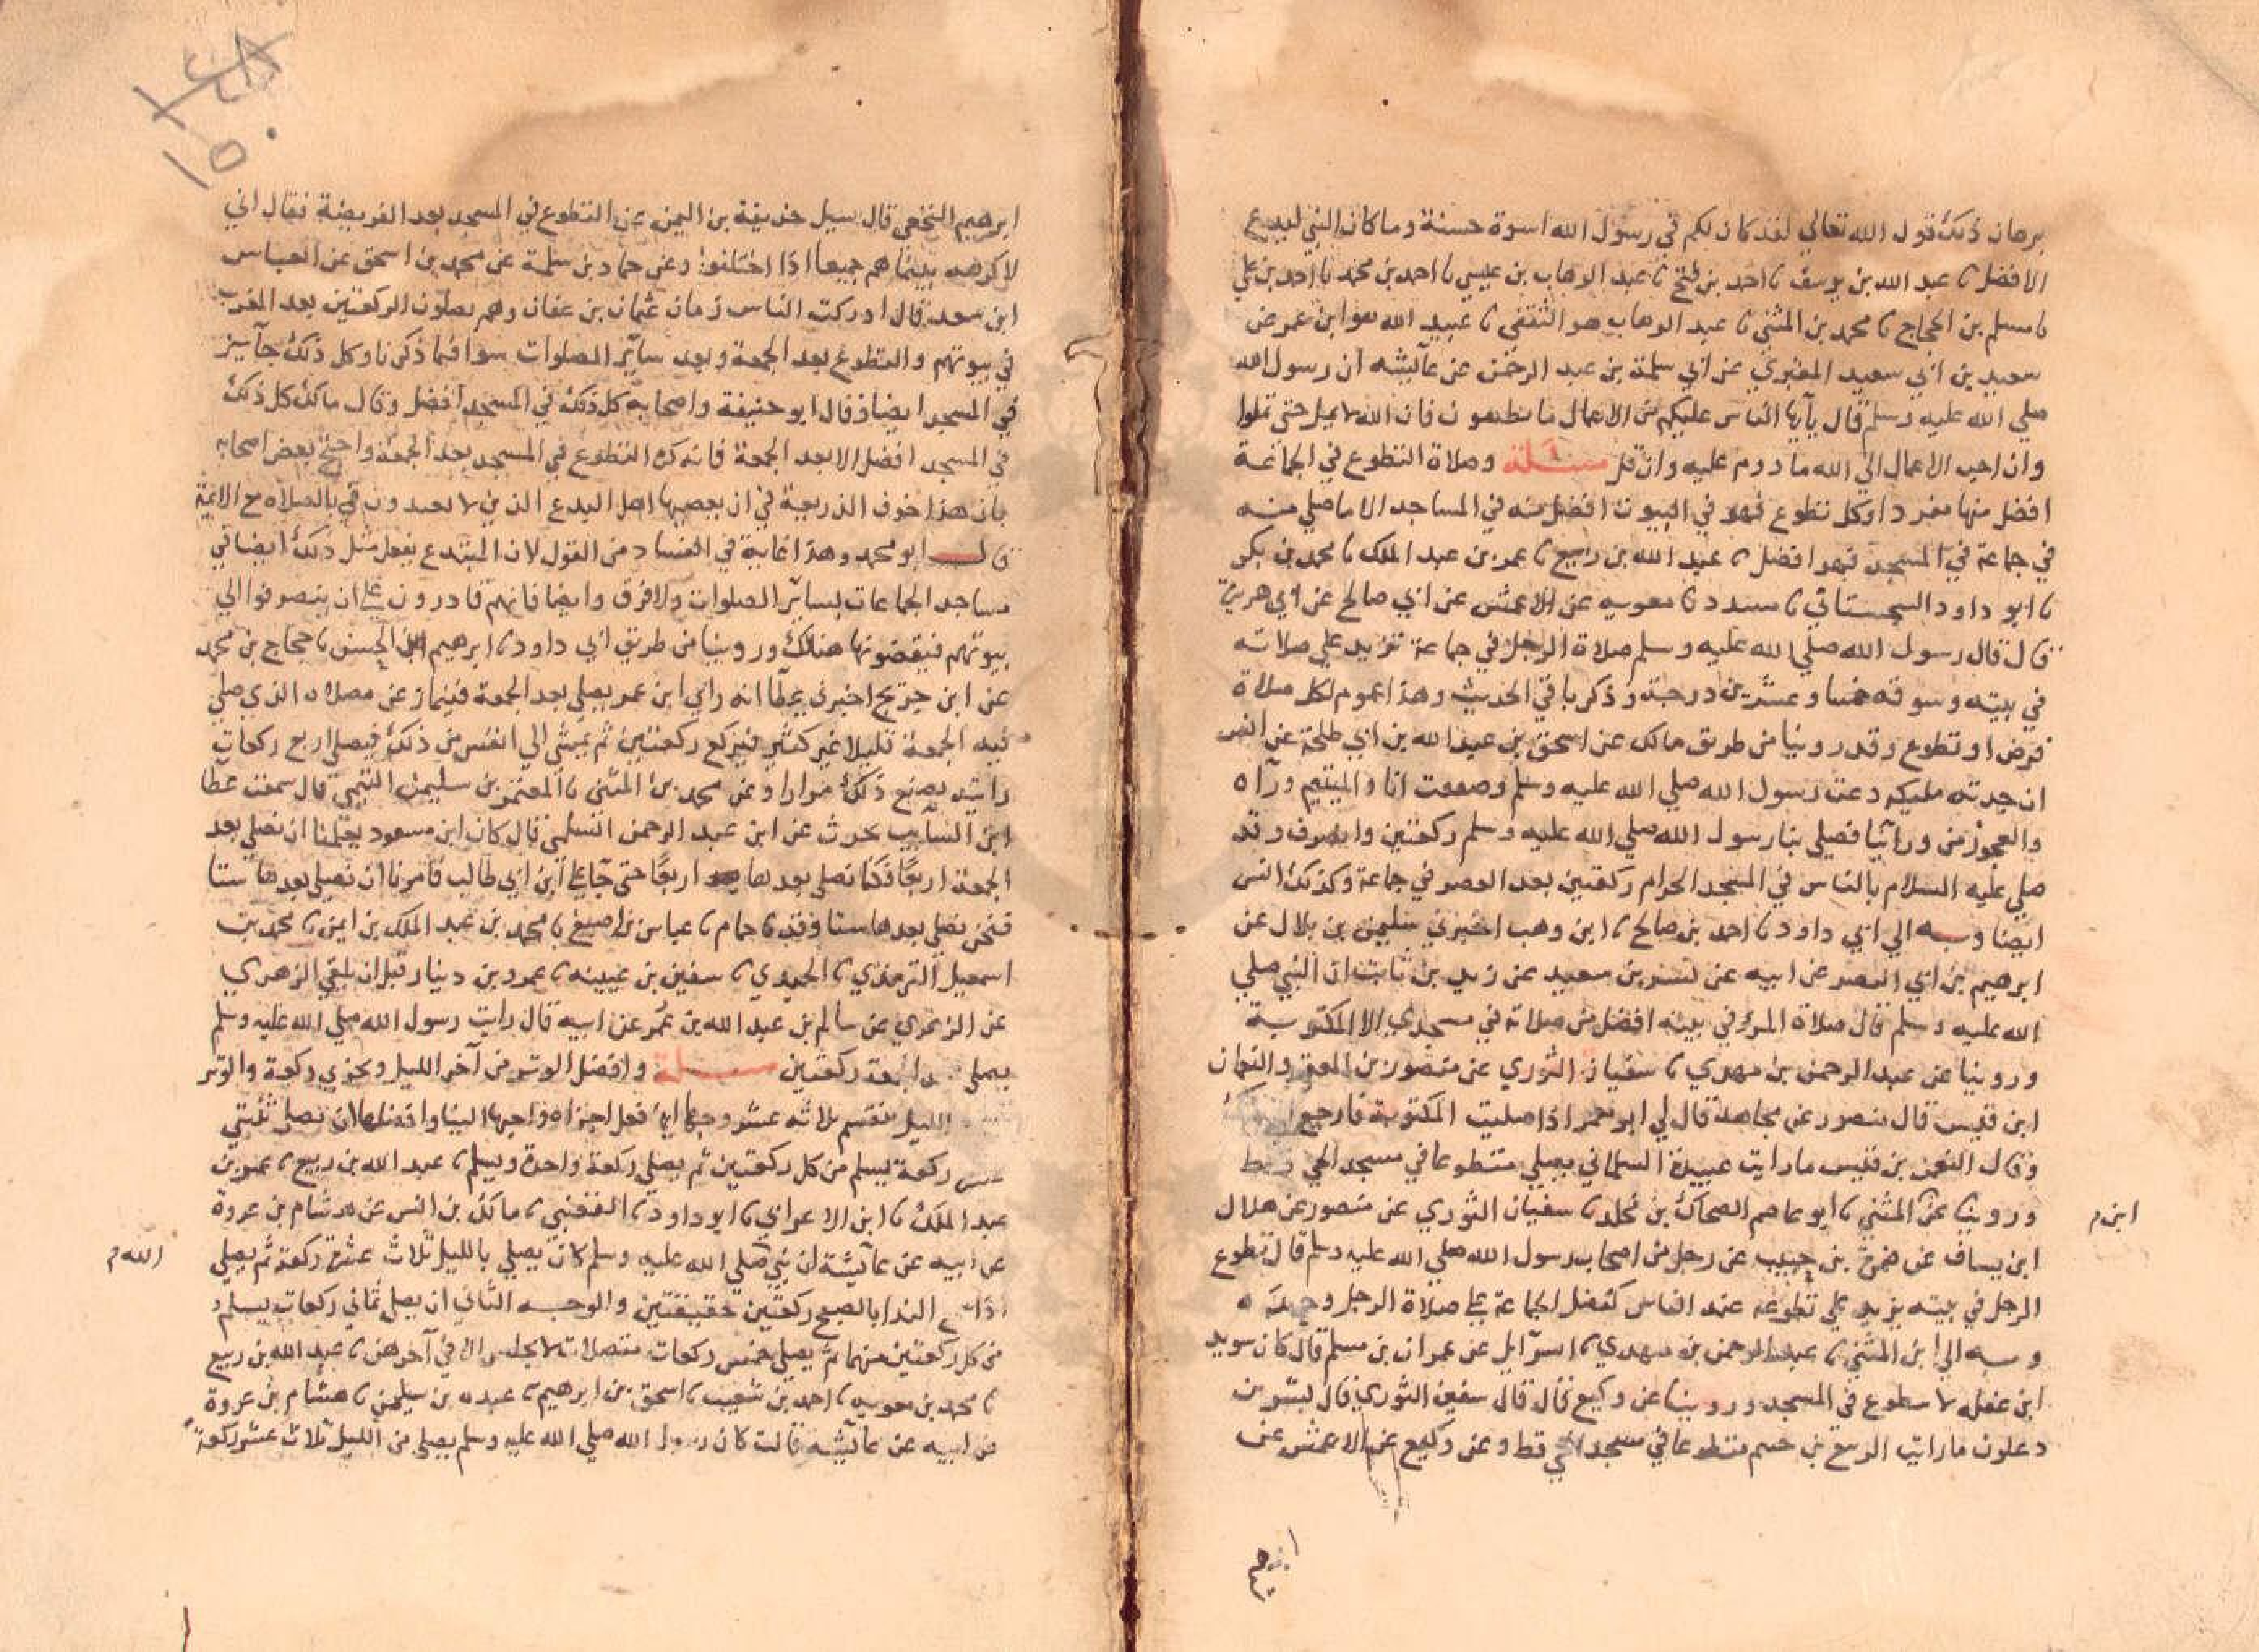 برهان ذلك قول الله تعالي لقد كان لكم في رسول الله اسوة حسنة وما كان النبي ليدع
الافضل نا عبد الله بن يوسف نا احمد بن فتح نا عبد الوهاب بن عيسي نا احمد بن محمد نا احمد بن علي
نا مسلم بن الحجاج نا محمد بن المثني نا عبد الوهاب هو الثقفي نا عبيد الله هو ابن عمر عن
سعيد بن ابي سعيد المقبري عن ابي سلمة بن عبد الرحمن عن عآئشه ان رسول الله
صلي الله عليه وسلم قال يآيها الناس عليكم من الاعمال ما تطيقون فان الله لا يمل حتي تملوا
وان احب الاعمال الي الله ما دوم عليه وان قل مسئلة وصلاة التطوع في الجماعة
افضل منها منفردا وكل تطوع فهو في البيوت افضل منه في المساجد الا ما صلي منه
في جماعة في المسجد فهو افضل نا عبد الله بن ربيع نا عمر بن عبد الملك نا محمد بن بكر
نا ابو داود السجستاني نا مسدد نا معويه عن الاعمش عن ابي صالح عن ابي هريرة
قال قال رسول الله صلي الله عليه وسلم صلاة الرجل في جماعة تزيد علي صلاته
في بيته وسوقه خمسا وعشرين درجة وذكر باقي الحديث وهذا عموم لكل صلاة
فرض او تطوع وقد روينا من طريق مالك عن اسحق بن عبد الله بن ابي طلحة عن انس
ان جدته مليكه دعت رسول الله صلي الله عليه وسلم وصففت انا واليتيم ورآه
والعجوز من ورآئنا فصلي بنا رسول الله صلي الله عليه وسلم ركعتين وانصرف وقد
صلي عليه السلام بالناس في المسجد الحرام ركعتين بعد العصر في جماعة وكذلك انس
ايضا وبه الي ابي داود نا احمد بن صالح نا ابن وهب اخبرني سليمن بن بلال عن
ابرهيم بن ابي النصر عن ابيه عن بسر بن سعيد عن زيد بن ثابت ان النبي صلي
الله عليه وسلم قال صلاة المرؤ في بيته افضل من صلاته في مسجدي الا المكتوبة
وروينا عن عبد الرحمن بن مهدي نا سفيان الثوري عن منصور بن المعتمر والنعمان
ابن قيس قال منصور عن مجاهد قال لي ابو معمر اذا صليت المكتوبة فارجع
وقال النعمن بن قيس ما رايت عبيدة السلماني يصلي متطوعا في مسجد الحي قط
وروينا عن المثني نا ابو عاصم الضحاك بن مخلد نا سفيان الثوري عن منصور عن هلال
ابن م
ابن يساف عن ضمرة بن حبيب عن رجل من اصحاب رسول الله صلي الله عليه وسلم قال تطوع
الرجل في بيته يزيد علي تطوعه عند الناس كفضل الجماعة علي صلاة الرجل وحده
وبه الي ابن المثني نا عبد الرحمن بن مهدي نا اسرآئيل عن عمران بن مسلم قال كان سويد
ابن غفله لا يتطوع في المسجد وروينا عن وكيع قال قال سفين الثوري قال نسير بن
دعلوق ما رايت الربيع بن خيثم متطوعا في مسجد الحي قط وعن وكيع عن الاعمش عن
ابرهيم النخعي قال سيل حذيفة بن اليمن عن التطوع في المسجد بعد الفريضة فقال اني
لاكرهه بينما هم جميعا اذا اختلفوا وعن حماد بن سلمة عن محمد بن اسحق عن العباس
ابن سعد قال ادركت الناس زمان عثمان بن عفان وهم يصلون الركعتين بعد المغرب
في بيوتهم والتطوع بعد الجمعة وبعد سآئر الصلوات سوا فيما ذكرنا وكل ذلك جآئز
في المسجد ايضا وقال ابو حنيفة واصحابه كل ذلك في المسجد افضل وقال مالك كل ذلك
في المسجد افضل الا بعد الجمعة فانه كره التطوع في المسجد بعد الجمعة واحتج بعض اصحابه
بان هذا خوف الذريعة في ان يعصبها اهل البدع الذين لا يعيدون في بالصلاه مع الائمة
قال ابو محمد وهذا غاية في الفساد من القول لان المبتدع يفعل مثل ذلك ايضا في
مساجد الجماعات لسآئر الصلوات ولا فرق وايضا فانهم قادرون علي ان ينصرفوا الي
بيوتهم فيقضونها هنالك وروينا من طريق ابي داود نا ابرهيم ابن الحسن نا حجاج بن محمد
عن ابن جريج اخبرني عطآ انه راي ابن عمر يصلي بعد الجمعة فينماز عن مصلاه الذي صلي
فيه الجمعة قليلا غير كثير فيركع ركعتين ثم يمشي الي انفس من ذلك فيصلي اربع ركعات
رايته يصنع ذلك مرارا وعن محمد بن المثني نا المعتمر بن سليمن التيمي قال سمعت عطا
ابن السآئب يحدث عن ابن عبد الرحمن السلمي قال كان ابن مسعود يعلمنا ان نصلي بعد
الجمعة اربعا فكنا نصلي بعدها اربعا حتي جآ علي ابن ابي طالب فامرنا ان نصلي بعدها ستا
فنحن نصلي بعدها ستا وقد نا حمام نا عباس بن اصبغ نا محمد بن عبد الملك بن ايمن نا محمد بن
اسمعيل الترمذي نا الحميدي نا سفين بن عيينه نا عمرو بن دينار قبل ان يلقي الزهري
عن الزهري عن سالم بن عبد الله بن عمر عن ابيه قال رايت رسول الله صلي الله عليه وسلم
يصلي بعد الجمعة ركعتين مسئلة وافضل الوتر من آخر الليل وتجزي ركعة والوتر
الليل ينقسم ثلاثه عشر وجها ايها فعل اجزاه واحبها الينا وافضلها ان نصلي ثنتي
عشر ركعة يسلم من كل ركعتين ثم يصلي ركعة واحدة ويسلم نا عبد الله بن ربيع نا عمر بن
عبد الملك نا ابن الاعرابي نا ابو داود نا القعنبي نا مالك بن انس عن هشام بن عروة
عن ابيه عن عآئشة ان نبي صلي الله عليه وسلم كان يصلي بالليل ثلاث عشرة ركعة ثم يصلي
الله م
اذا سمع الندا بالصبح ركعتين خفيفتين والوجه الثاني ان يصلي ثماني ركعات يسلم
من كل ركعتين منهما ثم يصلي خمس ركعات متصلات لا يجلس الا في آخرهن نا عبد الله بن ربيع
نا محمد بن معويه نا احمد بن شعيب نا اسحق بن ابرهيم نا عبده بن سليمن نا هشام بن عروة
عن ابيه عن عآئشه قالت كان رسول الله صلي الله عليه وسلم يصلي من الليل ثلاث عشر ركعة